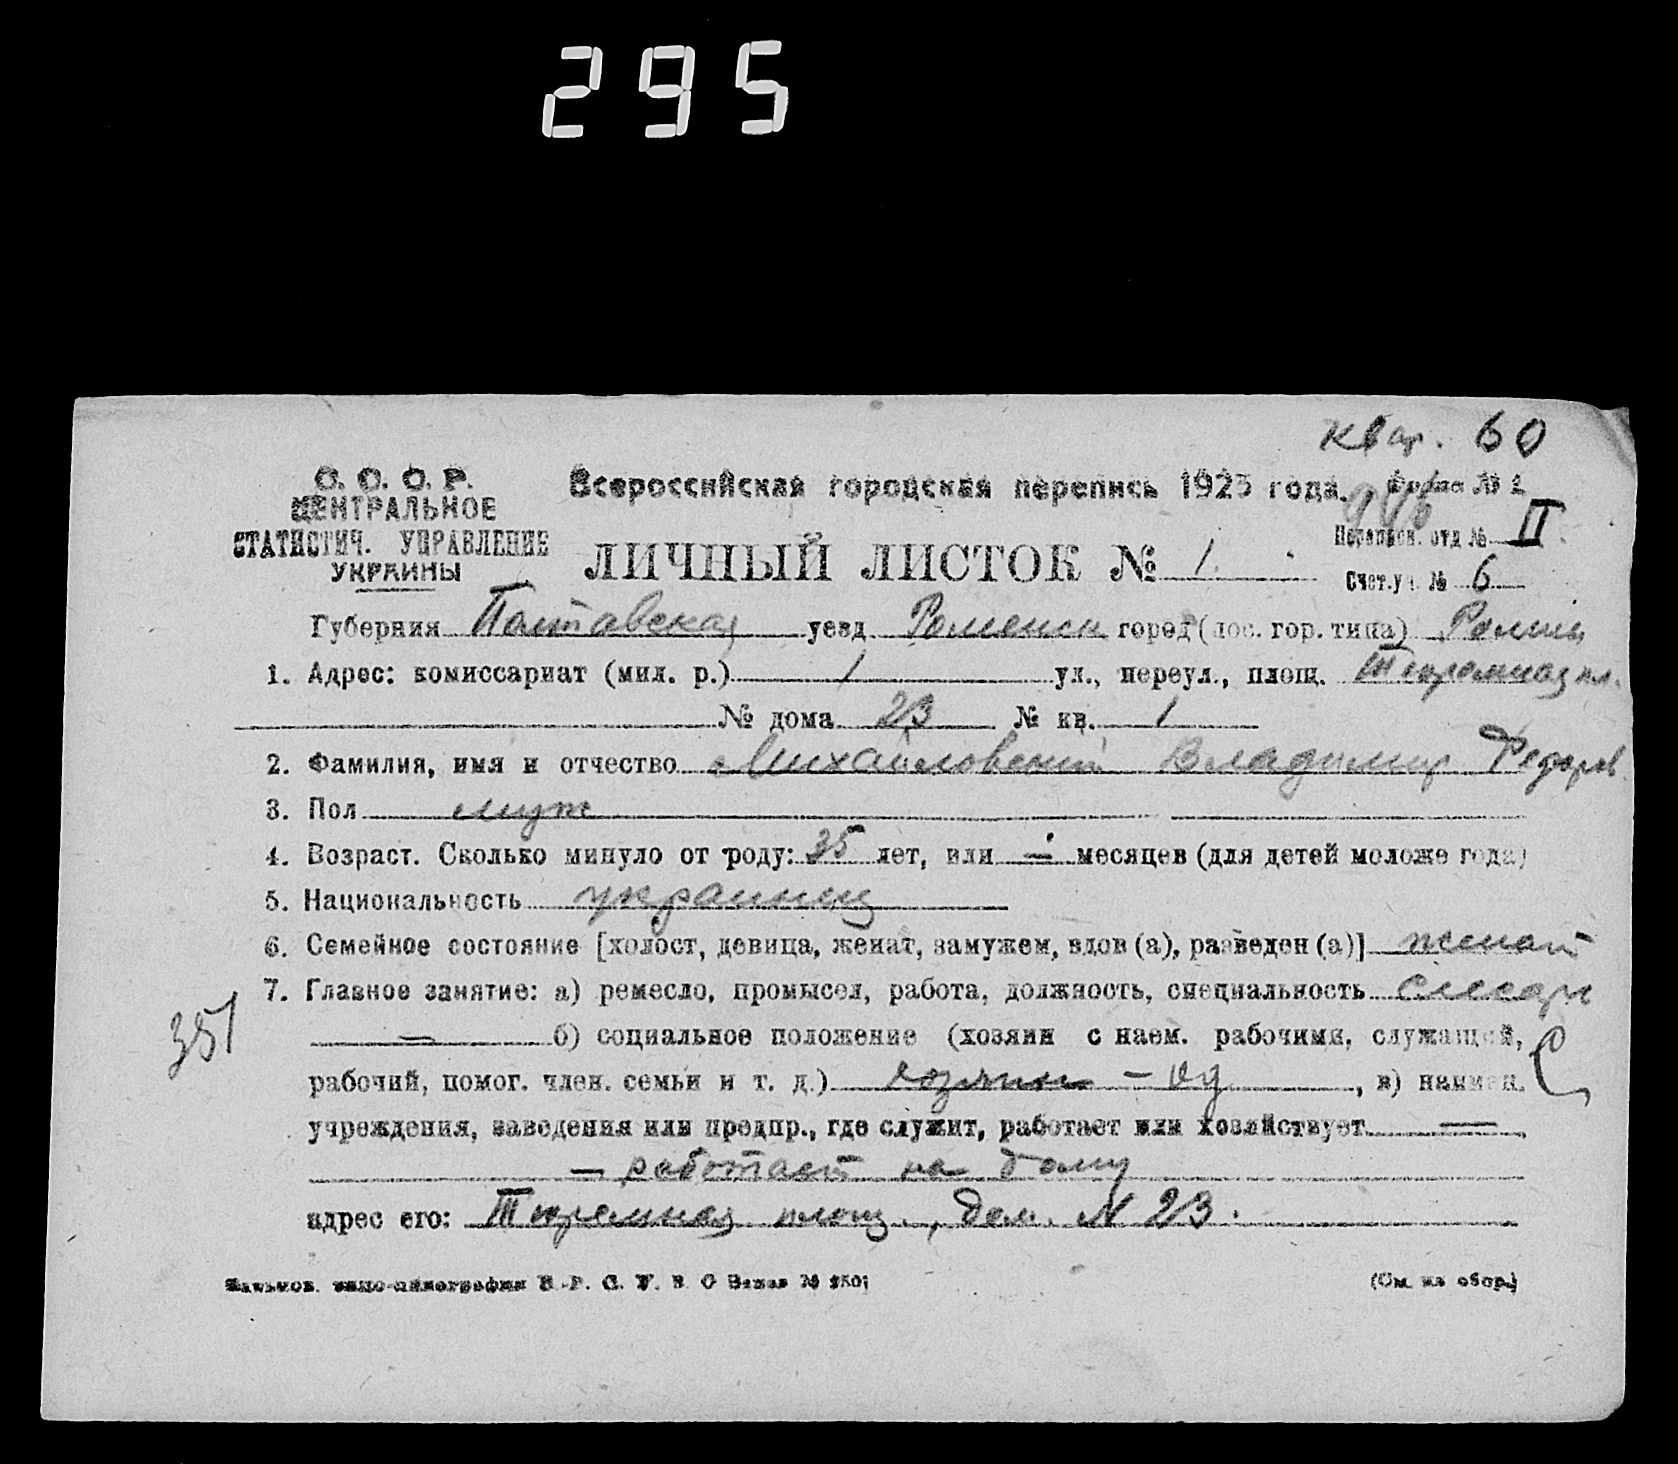 295
квар. 60
С. С. С. Р.
ЦЕНТРАЛЬНОЕ
СТАТИСТИЧ. УПРАВЛЕНИЕ
УКРАИНЫ
Всероссийская городская перепись 1923 года. Форма № 2
Переписн. отд № II
ЛИЧНЫЙ ЛИСТОК № 1
Счет.уч. № 6
Губерния Полтавская уезд Роменск город (пос. гор. типа) Ромны
1. Адрес: комиссариат (мил. р.) 1 ул., переул., площ. Тюремная пл.
№ дома 23 № кв. 1
2. Фамилия, имя и отчество Михайловский Владимир Федоров.
3. Пол муж
4. Возраст. Сколько минуло от роду: 35 лет, или — месяцев (для детей моложе года)
5. Национальность украинец
6. Семейное состояние [холост, девица, женат, замужем, вдов (а), разведен (а)] женат
7. Главное занятие: а) ремесло, промысел, работа, должность, специальность слесарь
351
— б) социальное положение (хозяин с наем. рабочими, служащий,
рабочий, помог. член. семьи и т. д.) хозяин – од, в) наимен.
учреждения, заведения или предпр., где служит, работает или хозяйствует —
— работает на дому
адрес его: Тюремная площ., дом. N 23.
(См. на обор.)